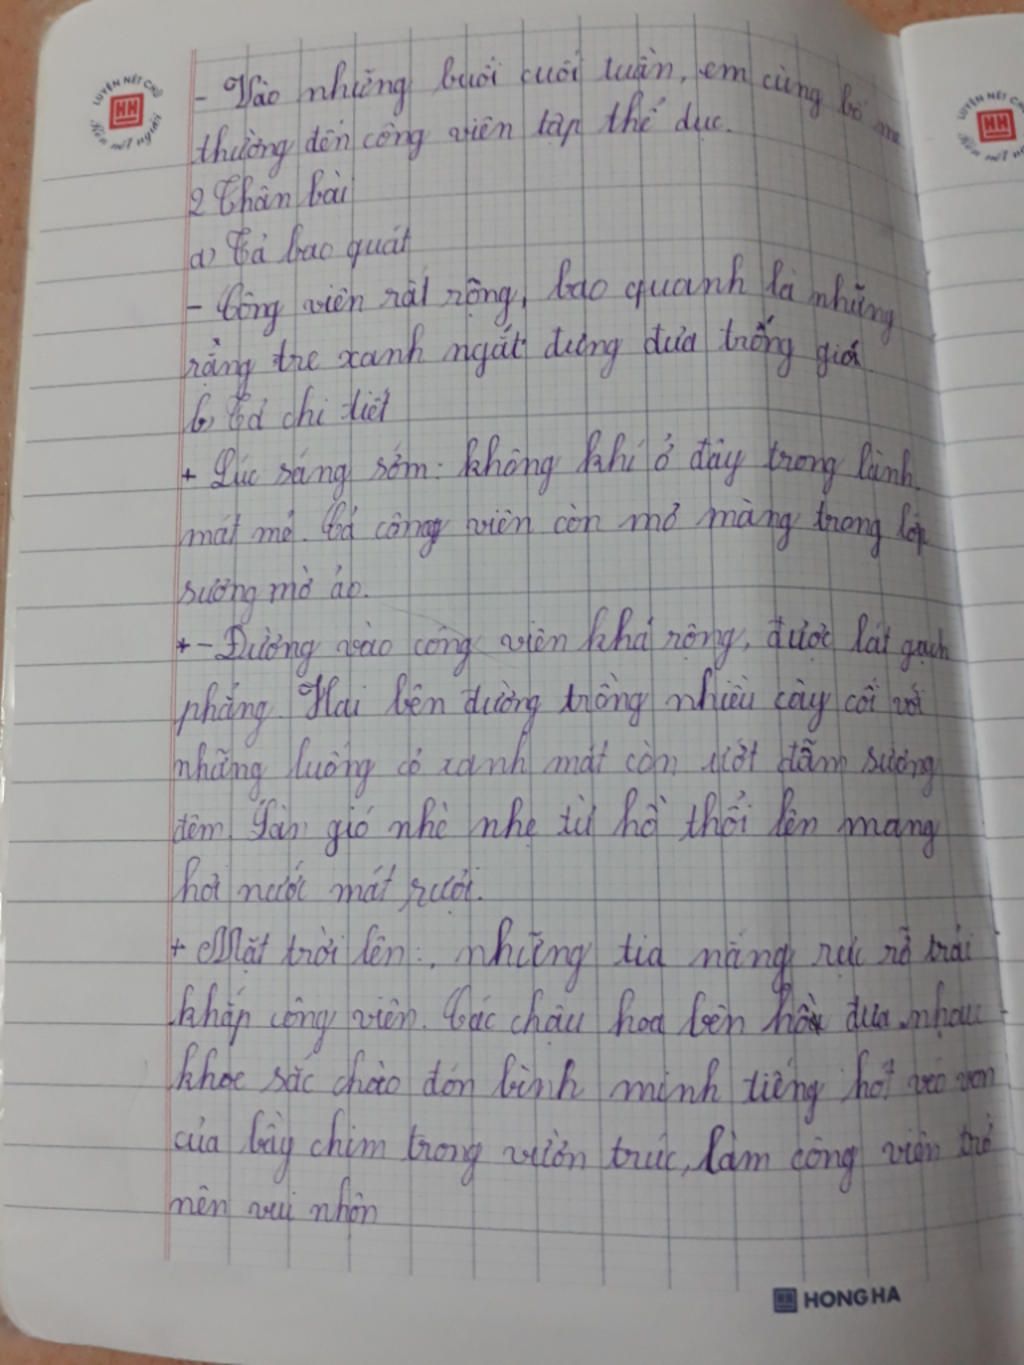 LUYỆN NÉT CHỮ
HH
Rèn nết người
- Vào những buổi cuối tuần, em cùng bố mẹ
thường đến công viên tập thể dục.
2 Thân bài
a) Tả bao quát
- Công viên rất rộng, bao quanh là những
rặng tre xanh ngát đung đưa trong gió.
b) Tả chi tiết
+ Lúc sáng sớm: không khí ở đây trong lành
mát mẻ. Cả công viên còn mơ màng trong lớp
sương mờ ảo.
+ - Đường vào công viên khá rộng, được lát gạch
phẳng. Hai bên đường trồng nhiều cây cối với
những luống cỏ xanh mát còn ướt đẫm sương
đêm. Làn gió nhè nhẹ từ hồ thổi lên mang
hơi nước mát rượi.
+ Mặt trời lên:, những tia nắng rực rỡ trải
khắp công viên. Các chậu hoa bên hồ đua nhau
khoe sắc chào đón bình minh tiếng hót véo von
của bầy chim trong vườn trúc, làm công viên trở
nên vui nhộn
HONG HA
LUYỆN NÉT CH
HH